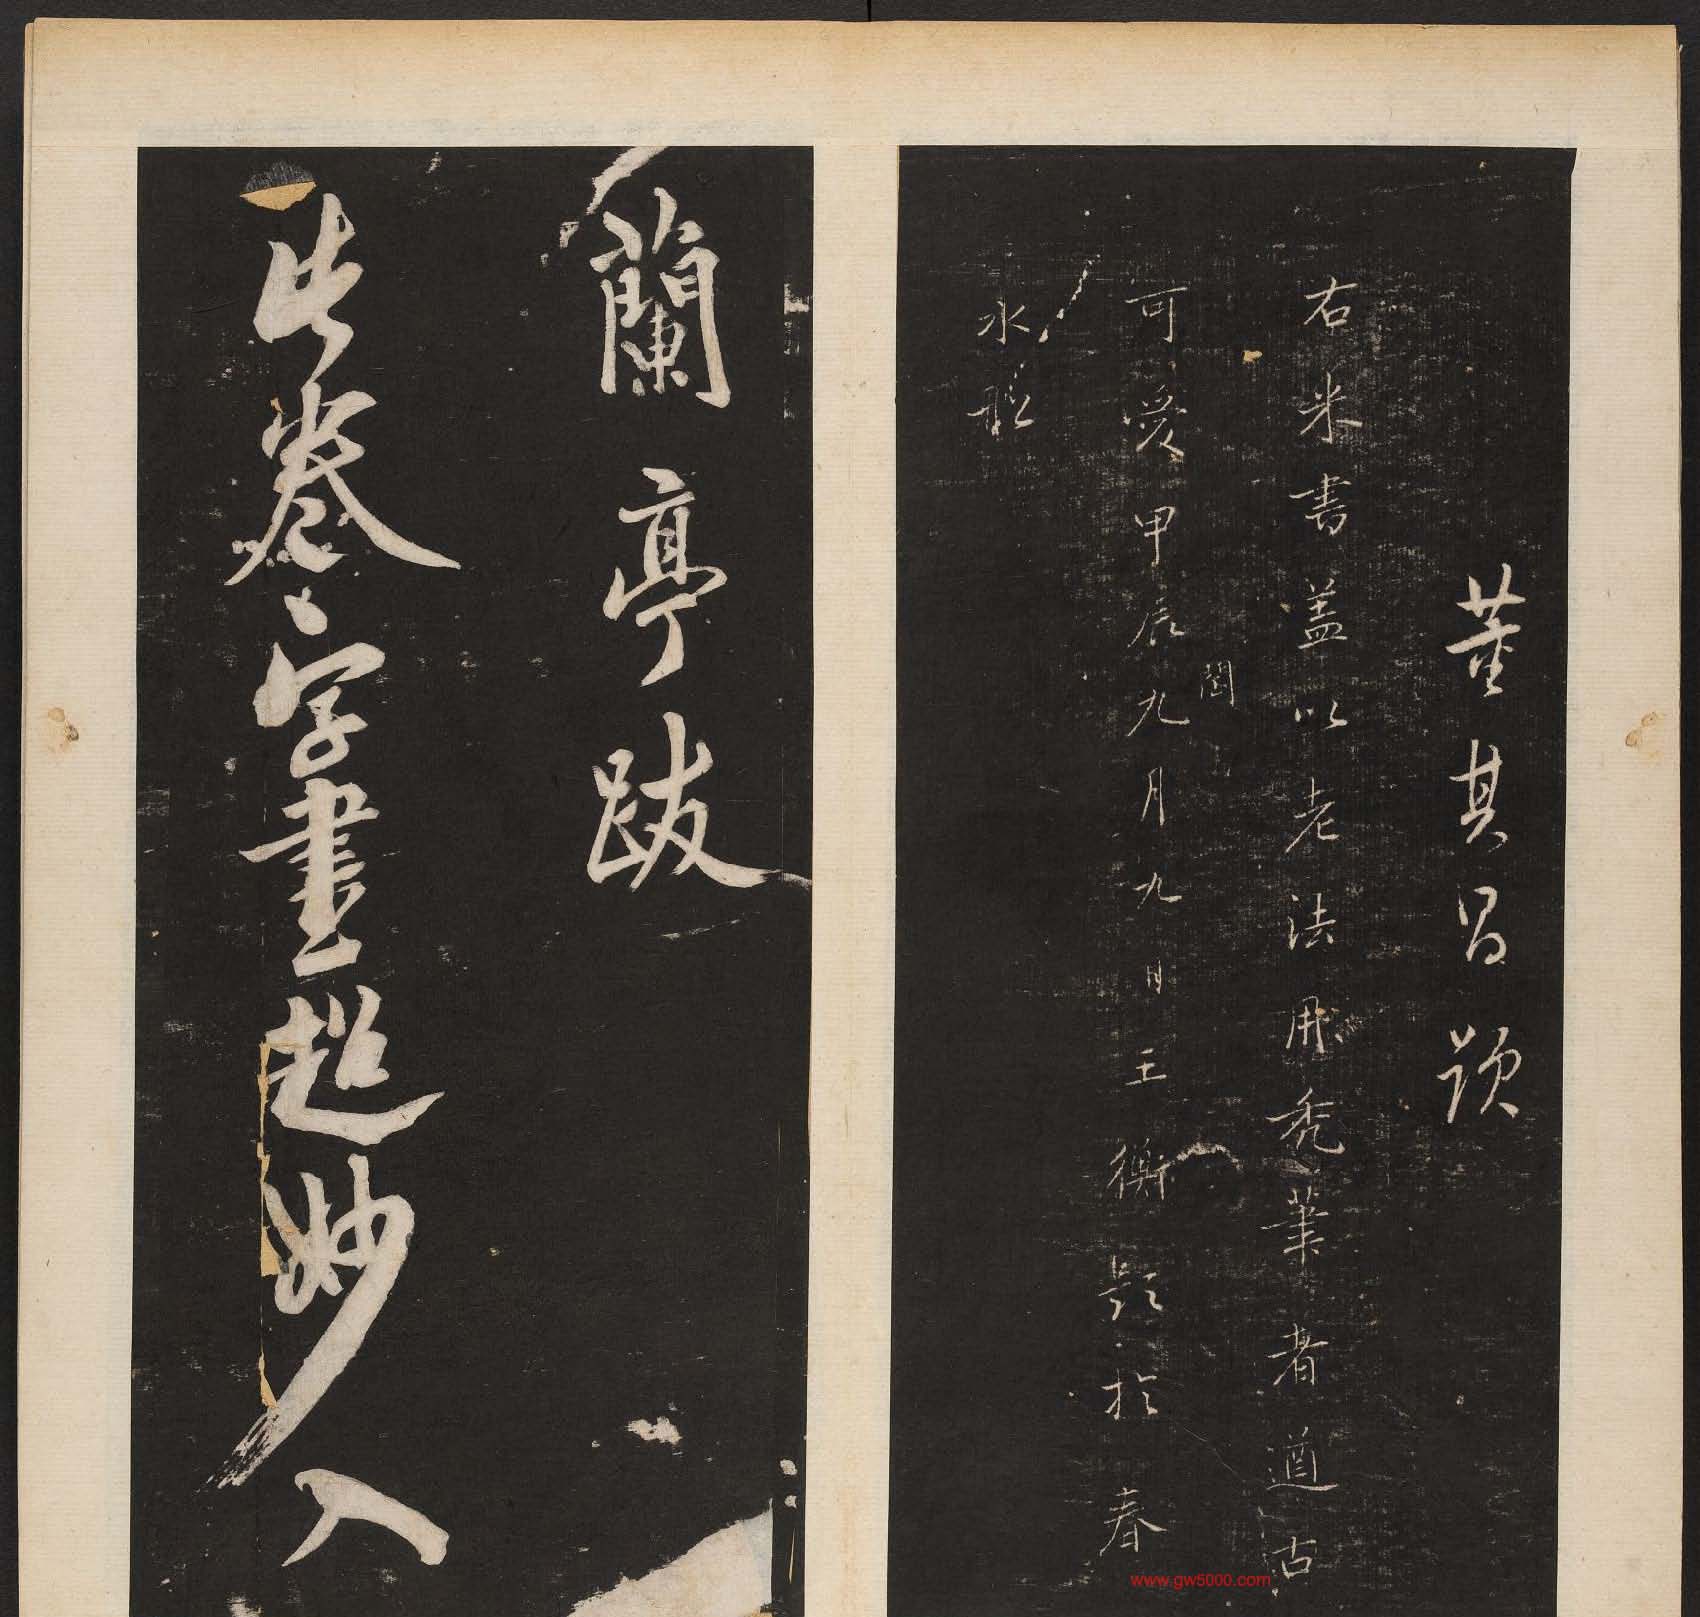 董其昌題
右米書蓋以老法用禿筆者遒古
可愛甲辰閏九月九日王衡題於春
水舩
蘭亭跋
此卷字書超妙入
www.gw5000.com